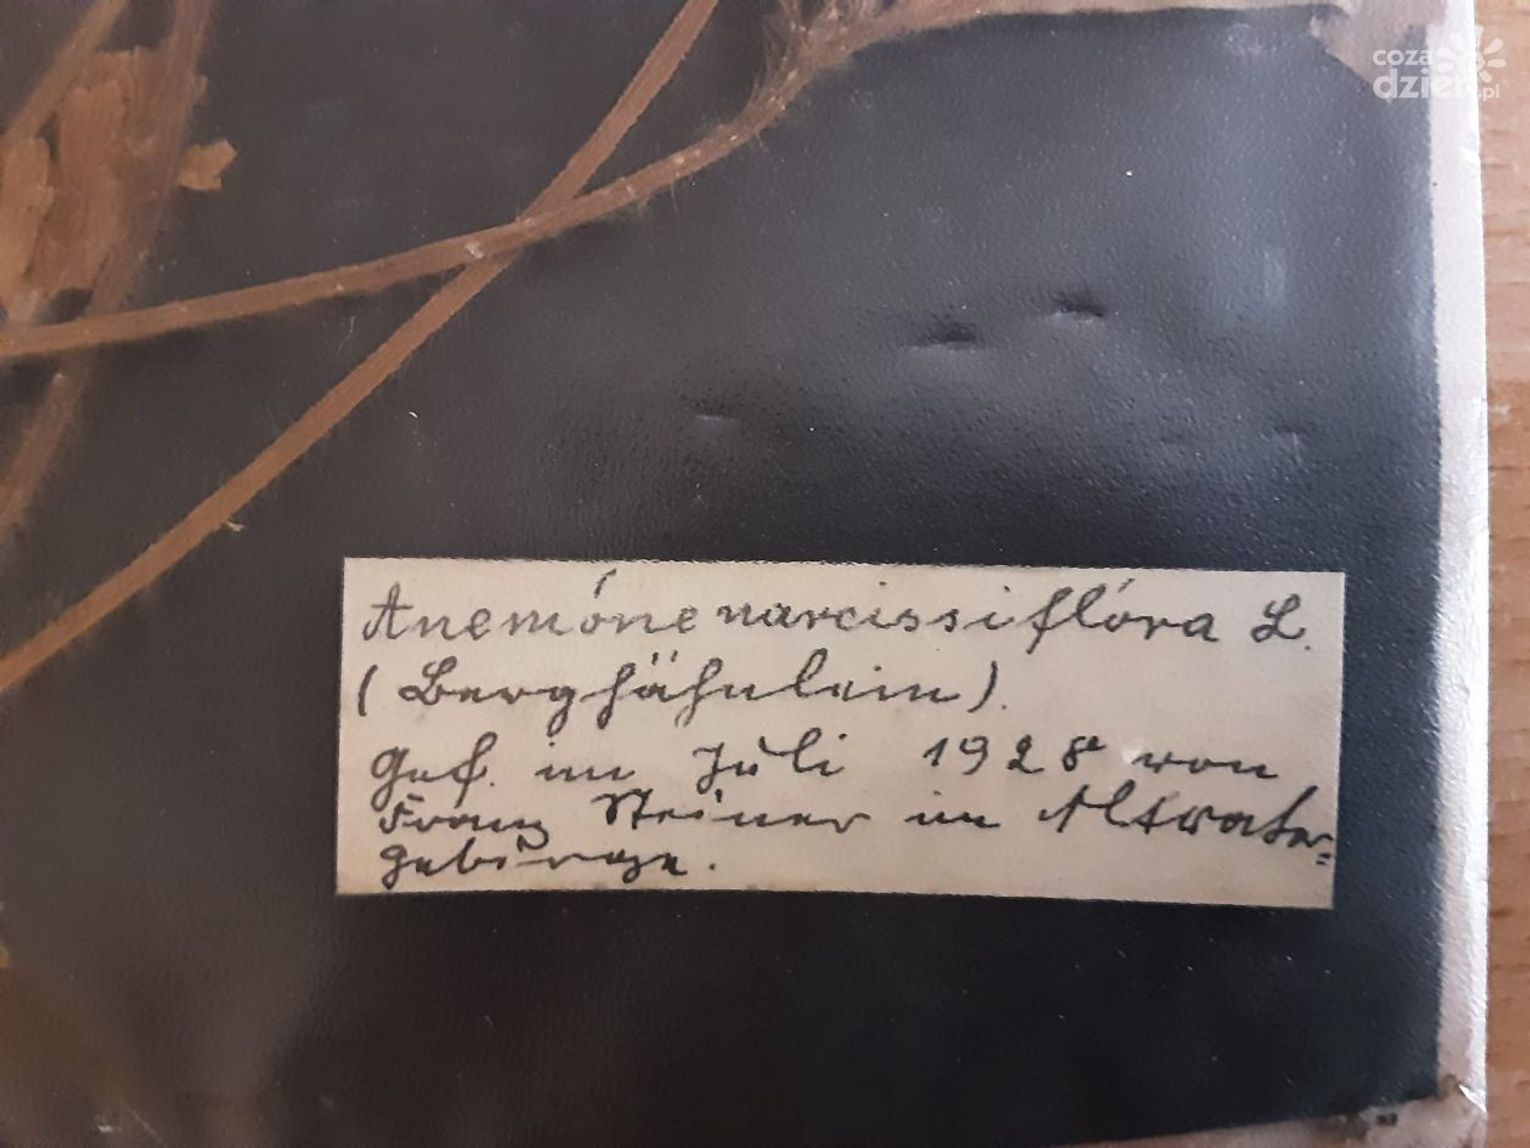 coza
dzień.pl
Anemóne narcissiflóra L.
(Berghähnlein).
Gef. im Juli 1928 von
Franz Steiner im Altvater-
gebirge.